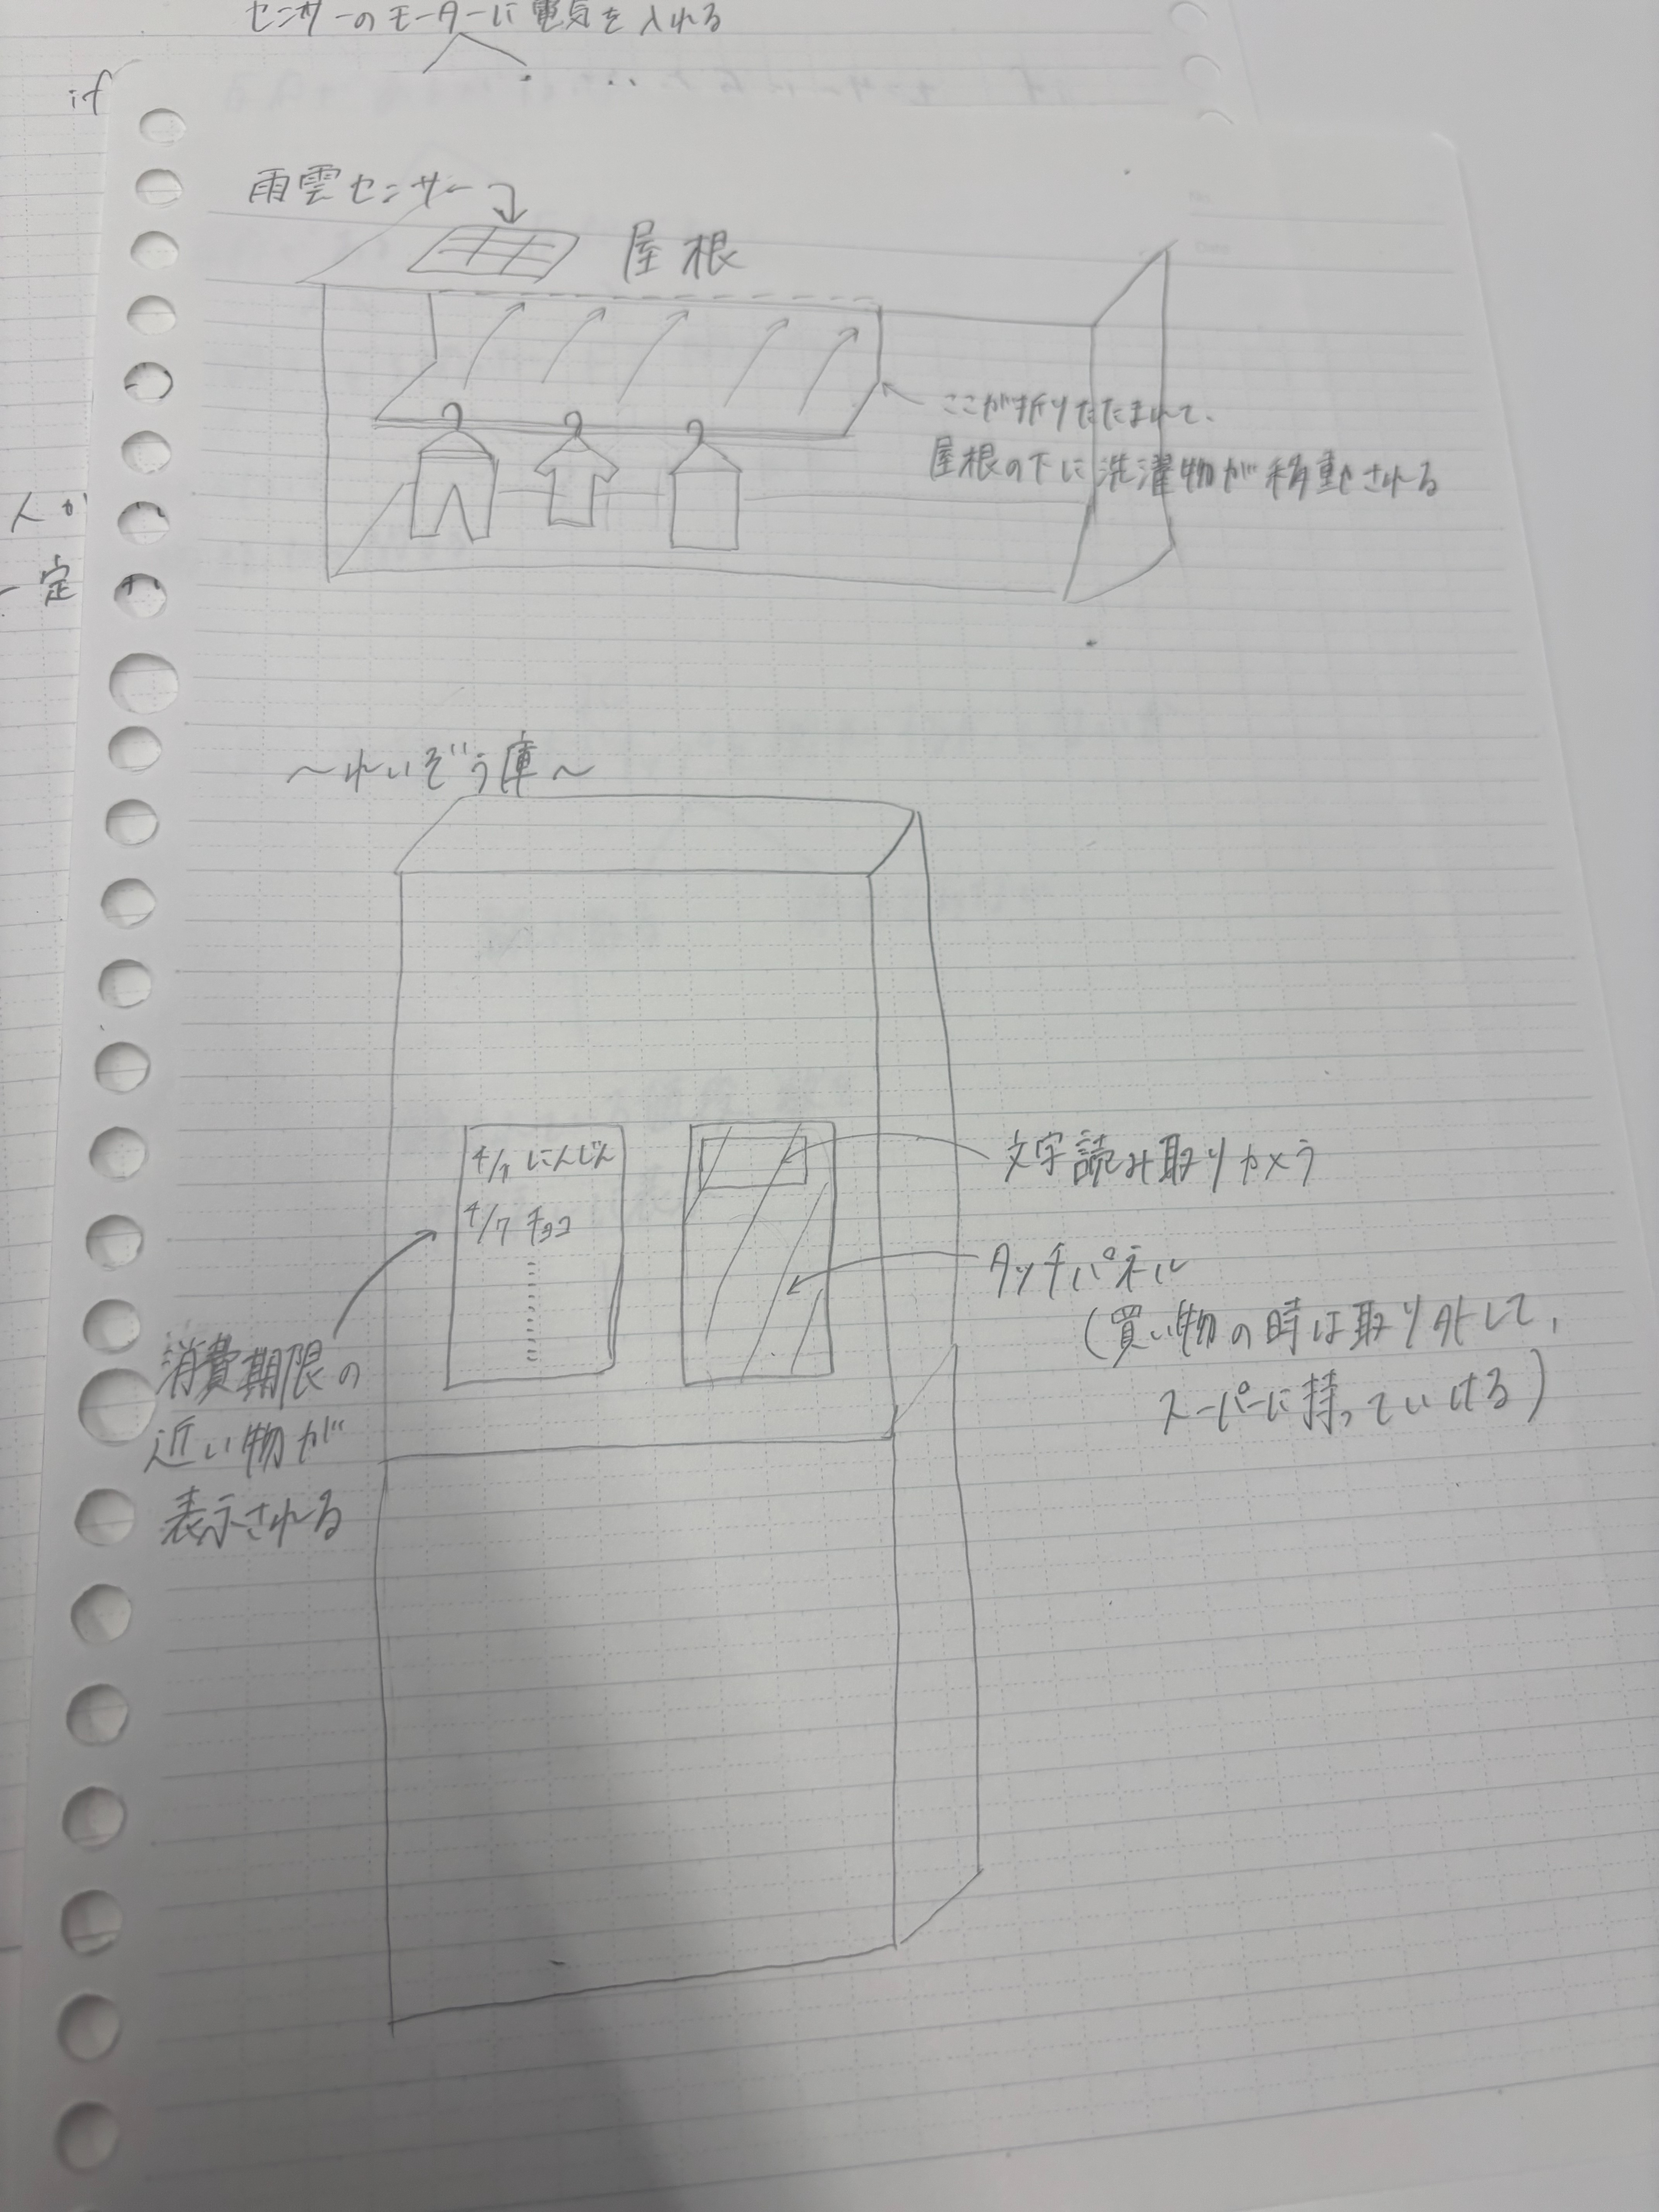 センサーのモーターに電気を入れる
if
雨雲センサー
屋根
ここが折りたたまれて、
屋根の下に洗濯物が移動される
人が
一定
〜れいぞう庫〜
にんじん
4/7 チョコ
文字読み取りカメラ
タッチパネル
(買い物の時は取り外して、
スーパーに持っていける)
消費期限の
近い物が
表示される